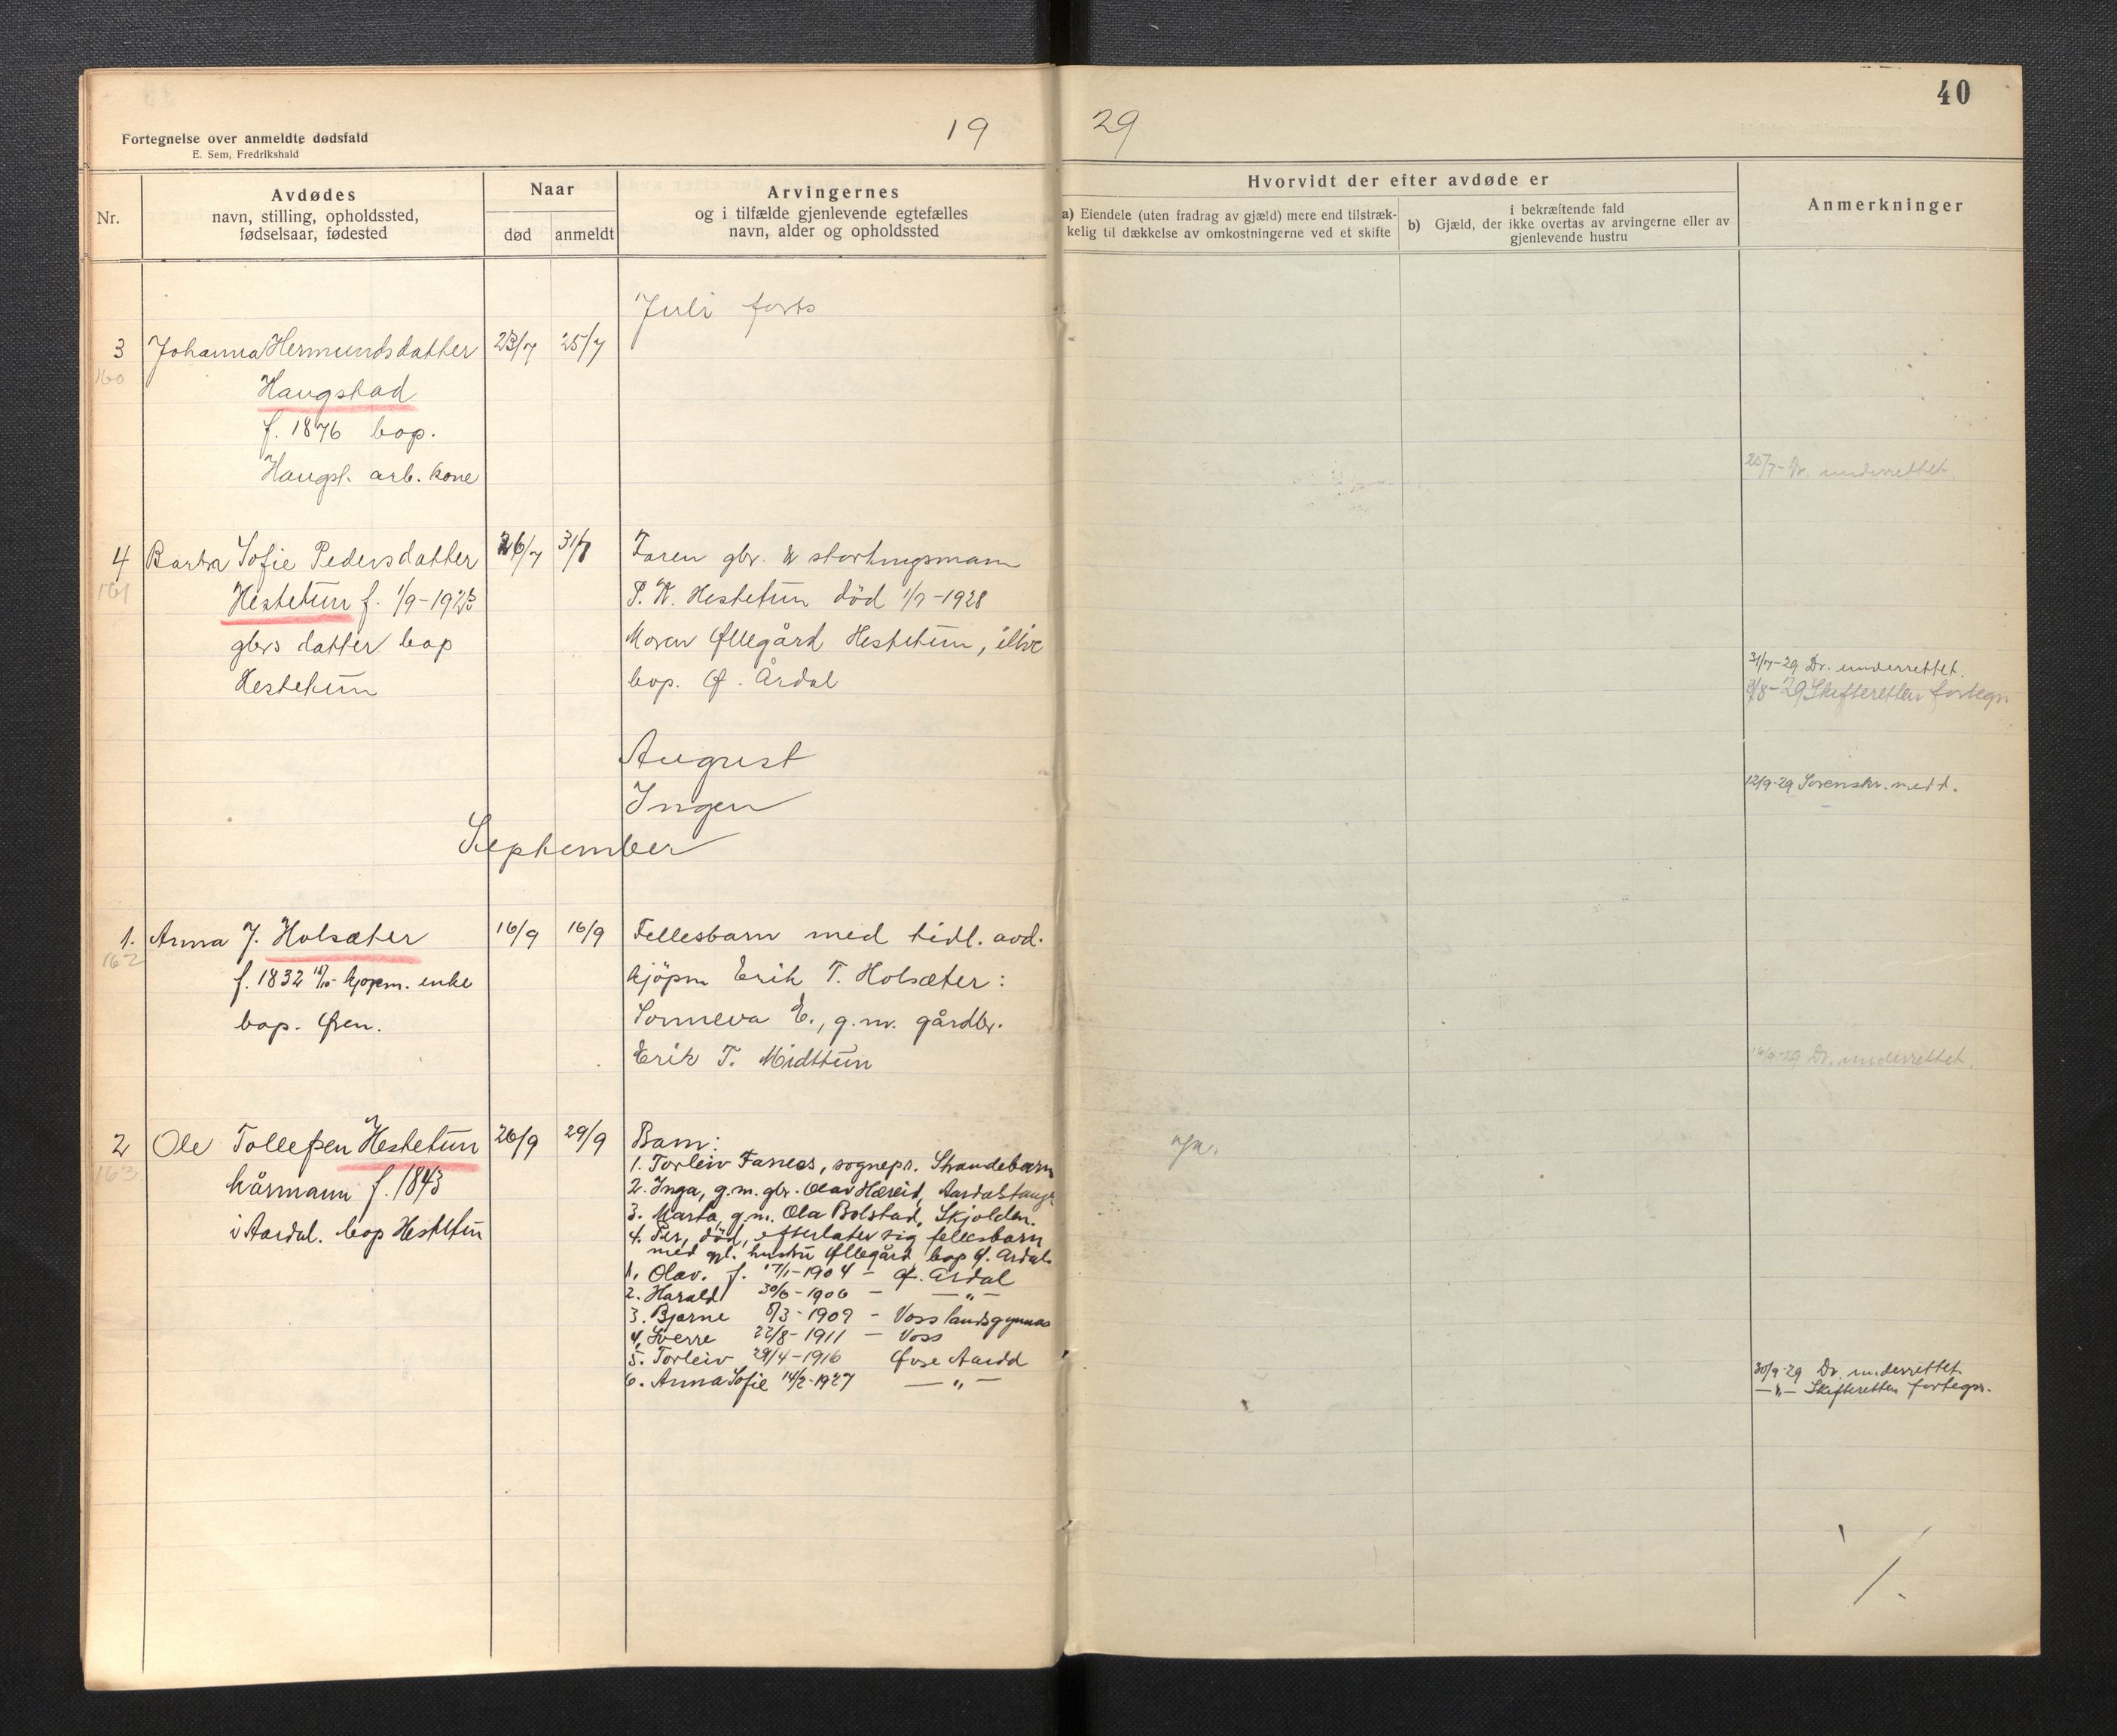 40
Fortegnelse over anmeldte dødsfald
E. Sem, Fredrikshald
19 29
Nr.
Avdødes
navn, stilling, opholdssted,
fødselsaar, fødested
Naar
død
anmeldt
Arvingernes
og i tilfælde gjenlevende egtefælles
navn, alder og opholdssted
Hvorvidt der efter avdøde er
a) Eiendele (uten fradrag av gjæld) mere end tilstræk-
kelig til dækkelse av omkostningerne ved et skifte
i bekræftende fald
b) Gjæld, der ikke overtas av arvingerne eller av
gjenlevende hustru
Anmerkninger
Juli forts
3 Johanna Hermundsdatter 23/7 25/7
160
Haugstad
f. 1876 bop.
Haugst. arb. kone
25/7- Dr. underrettet
4 Barbra Sofie Pedersdatter 26/7 31/7 Faren gbr. & stortingsmann
161
Hestetun f. 1/9-1923 P. K. Hestetun död 1/7-1928
gbrs datter bop Moren Øllegård Hestetun, ilive
Hestetun bop. Ø. Årdal
31/7-29 Dr. underrettet.
3/8-29 Skifteretten fortegn.
August
Ingen
12/9-29 Sorenskr. medd.
September
1. Anna J. Holsæter 16/9 16/9 Fellesbarn med tidl. avd.
162
f. 1832 kjøpm. enke kjöpm Erik T. Holsæter:
bop. Øren. Sonneva E., g.m. gårdbr.
Erik T. Midttun
16/9-29 Dr. underrettet.
2 Ole Tollefsen Hestetun 26/9 29/9 Barn: ja.
163
kårmann f. 1843
i Aardal. bop Hestetun
1. Torleiv Fanees, sognepr. Strandebarm
2. Inga, g.m. gbr. Olav Hæreid, Aardalstange
3. Marta, g.m. Ola Bolstad, Skjolden.
4. Per, död, efterlater sig fellesbarn
med gjl. hustru Øllegård, bop Ø. Årdal.
1. Olav. f. 17/1-1904 - Ø. Årdal
2. Harald 30/6-1906 - — „ —
3. Bjarne 8/3-1909 - Voss landsgymnas
4. Sverre 22/8-1911 — Voss
5. Torleiv 29/4-1916 Øvre Aardal
6. Anna Sofie 14/2-1927 — „ —
30/9-29 Dr. underrettet
— „ — Skifteretten fortegn.